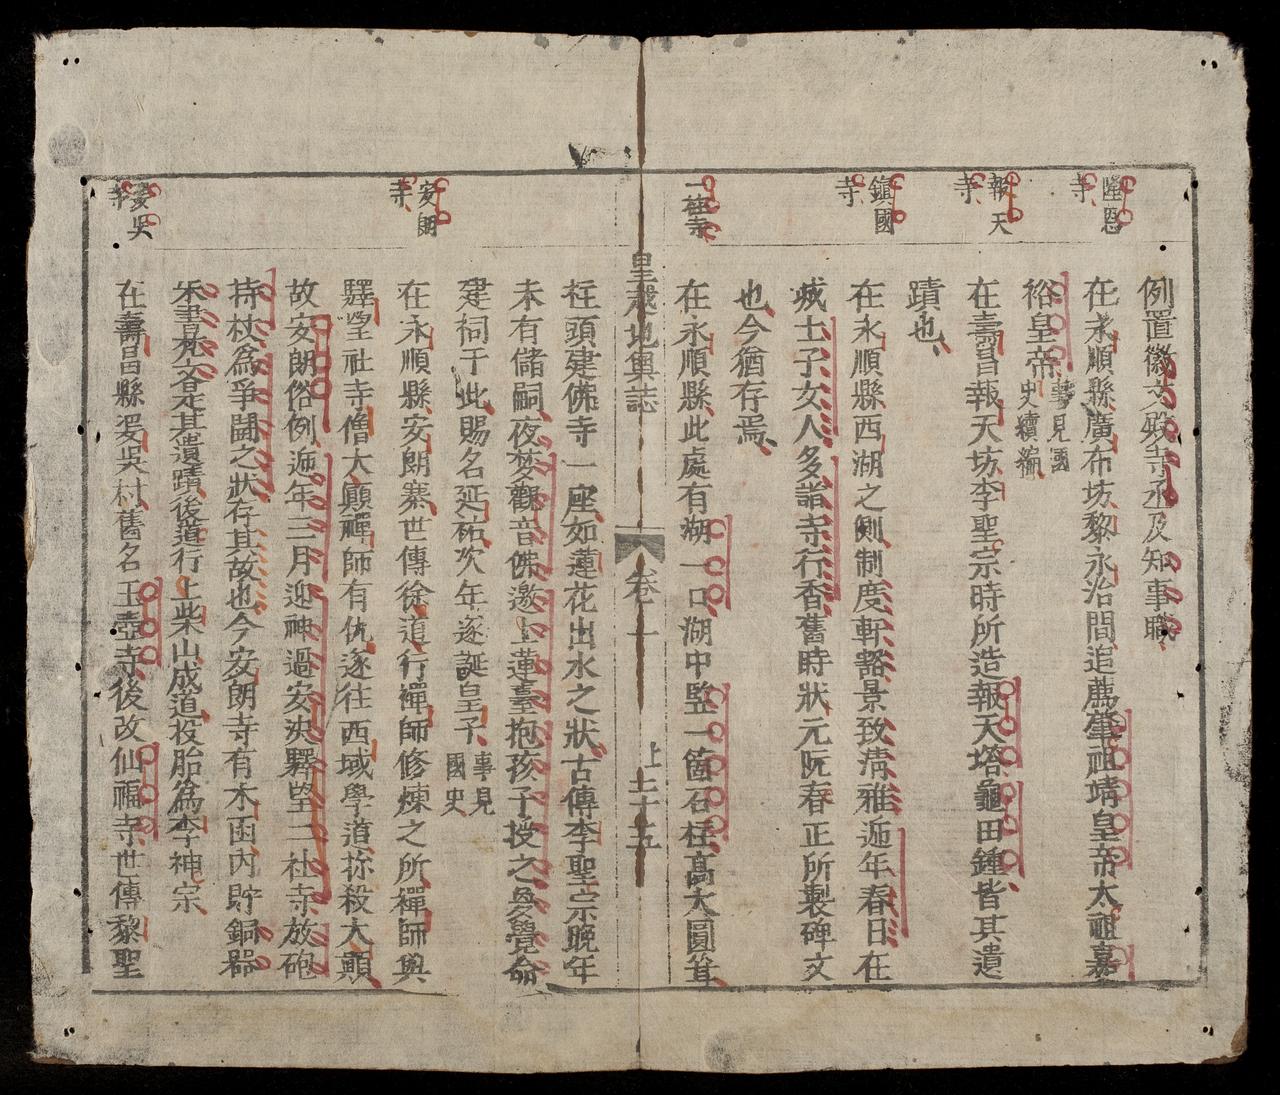 例置徽文殿寺丞及知事職
隆恩
寺
在永順縣廣布坊黎永治間追薦肇祖靖皇帝太祖嘉
裕皇帝
事見國
史續編
報天
寺
在壽昌報天坊李聖宗時所造報天塔龜田鍾皆其遺
蹟也
鎮國
寺
在永順縣西湖之側制度軒豁景致清雅迊年春日在
城士子女人多詣寺行香舊時狀元阮春正所製碑文
也今猶存焉
一柱寺
在永順縣此處有湖一口湖中竪一箇石柱高大圓耸
皇越地輿誌
卷一
上
二十五
柱頭建佛寺一座如蓮花出水之狀古傳李聖宗晚年
未有儲嗣夜夢觀音佛邀上蓮臺抱孩子授之及覺命
建祠于此賜名延祐次年遂誕皇子
事見
國史
安朗
寺
在永順縣安朗寨世傳徐道行禪師修煉之所禪師與
驛望社寺僧大顛禪師有仇遂往西域學道捺殺大顛
故安朗俗例迊年三月迎神過安決驛望二社寺放砲
持杖為爭鬪之狀存其故也今安朗寺有木函內貯銅器
是其遺蹟後道行上柴山成道投胎為李神宗
婆吳
寺
在壽昌縣婆吳村舊名玉壺寺後改仙福寺世傳黎聖